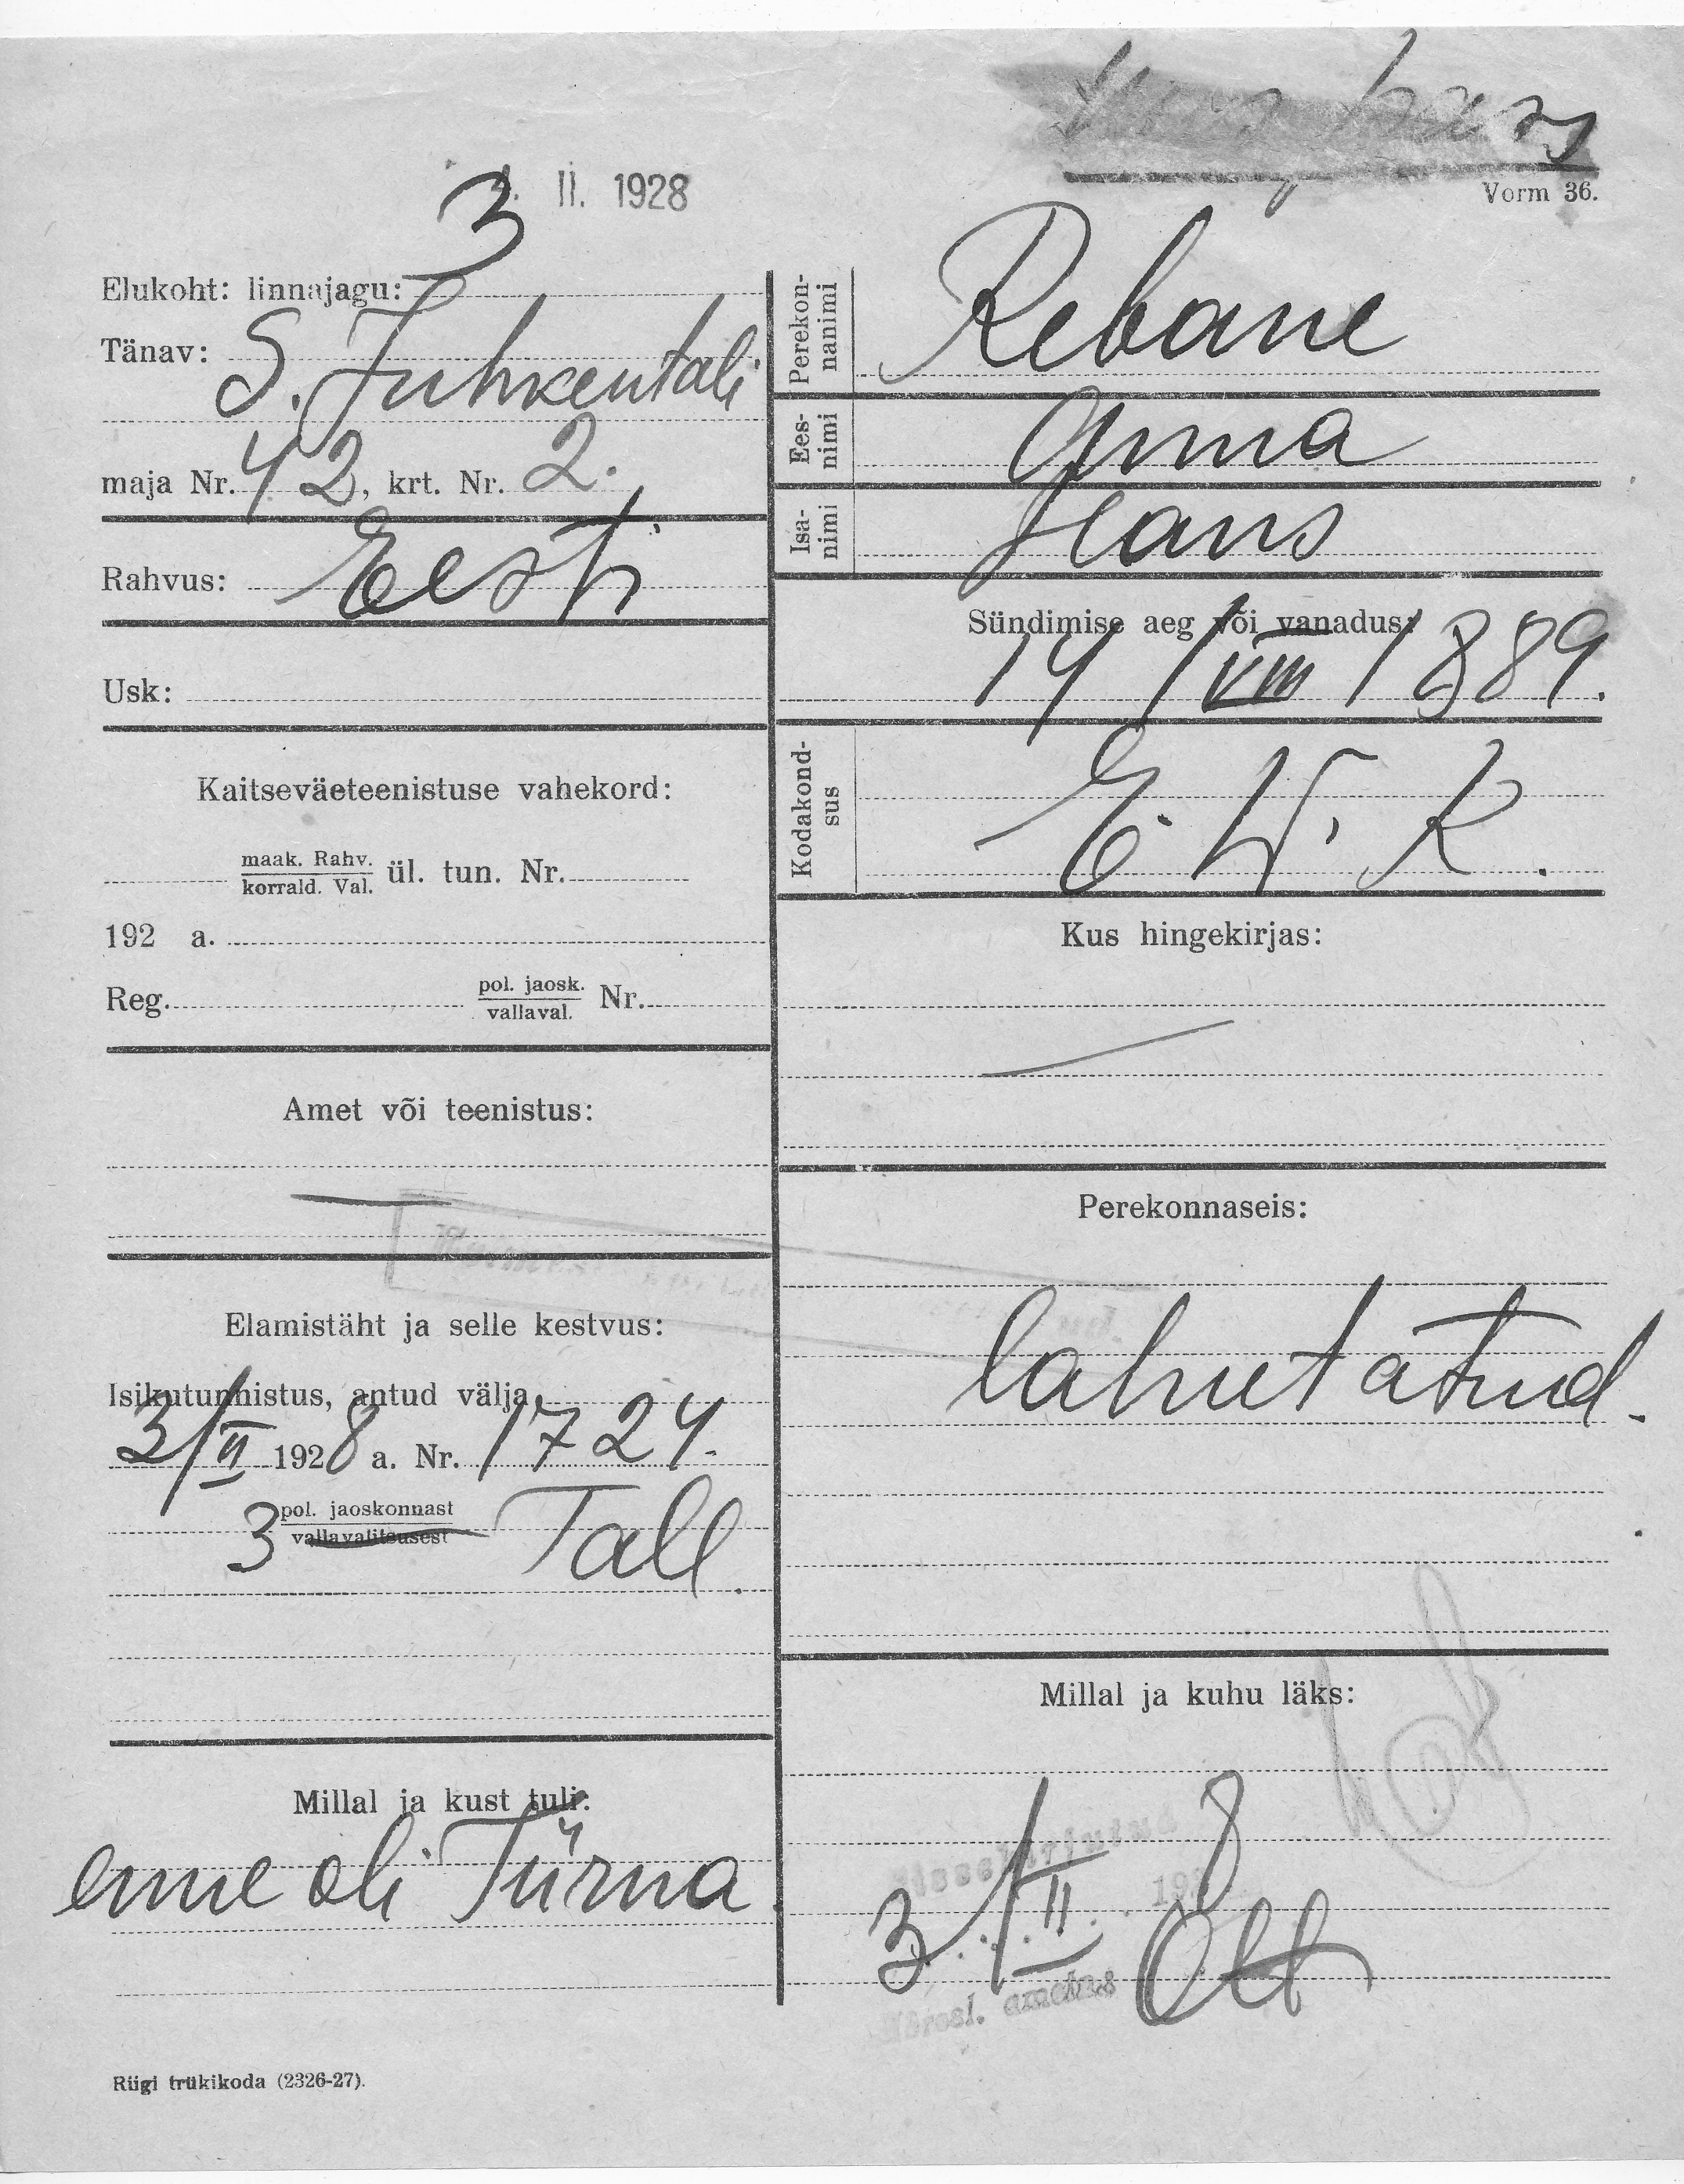 II. 1928
Vorm 36.
Elukoht: linnajagu: 3
Tänav: S. Juhkentali
maja Nr. 42, krt. Nr. 2.
Rahvus: Eesti
Usk:
Kaitseväeteenistuse vahekord:
maak. Rahv.
korrald. Val. ül. tun. Nr.
192 a.
Reg. pol. jaosk.
vallaval. Nr.
Amet või teenistus:
Elamistäht ja selle kestvus:
Isikutunnistus, antud välja
3/II 1928 a. Nr. 1724.
3 pol. jaoskonnast
vallavalitsusest Tall.
Millal ja kust tuli:
enne oli Türna
Riigi trükikoda (2326-27).
Perekon-
nanimi
Rebane
Ees-
nimi
Anna
Isa-
nimi
Hans
Sündimise aeg või vanadus:
14/VIII 1889.
Kodakond-
sus
E. W. R.
Kus hingekirjas:
Perekonnaseis:
lahutatud.
Millal ja kuhu läks:
Sissekirjutud
3/II 1928
ametnik